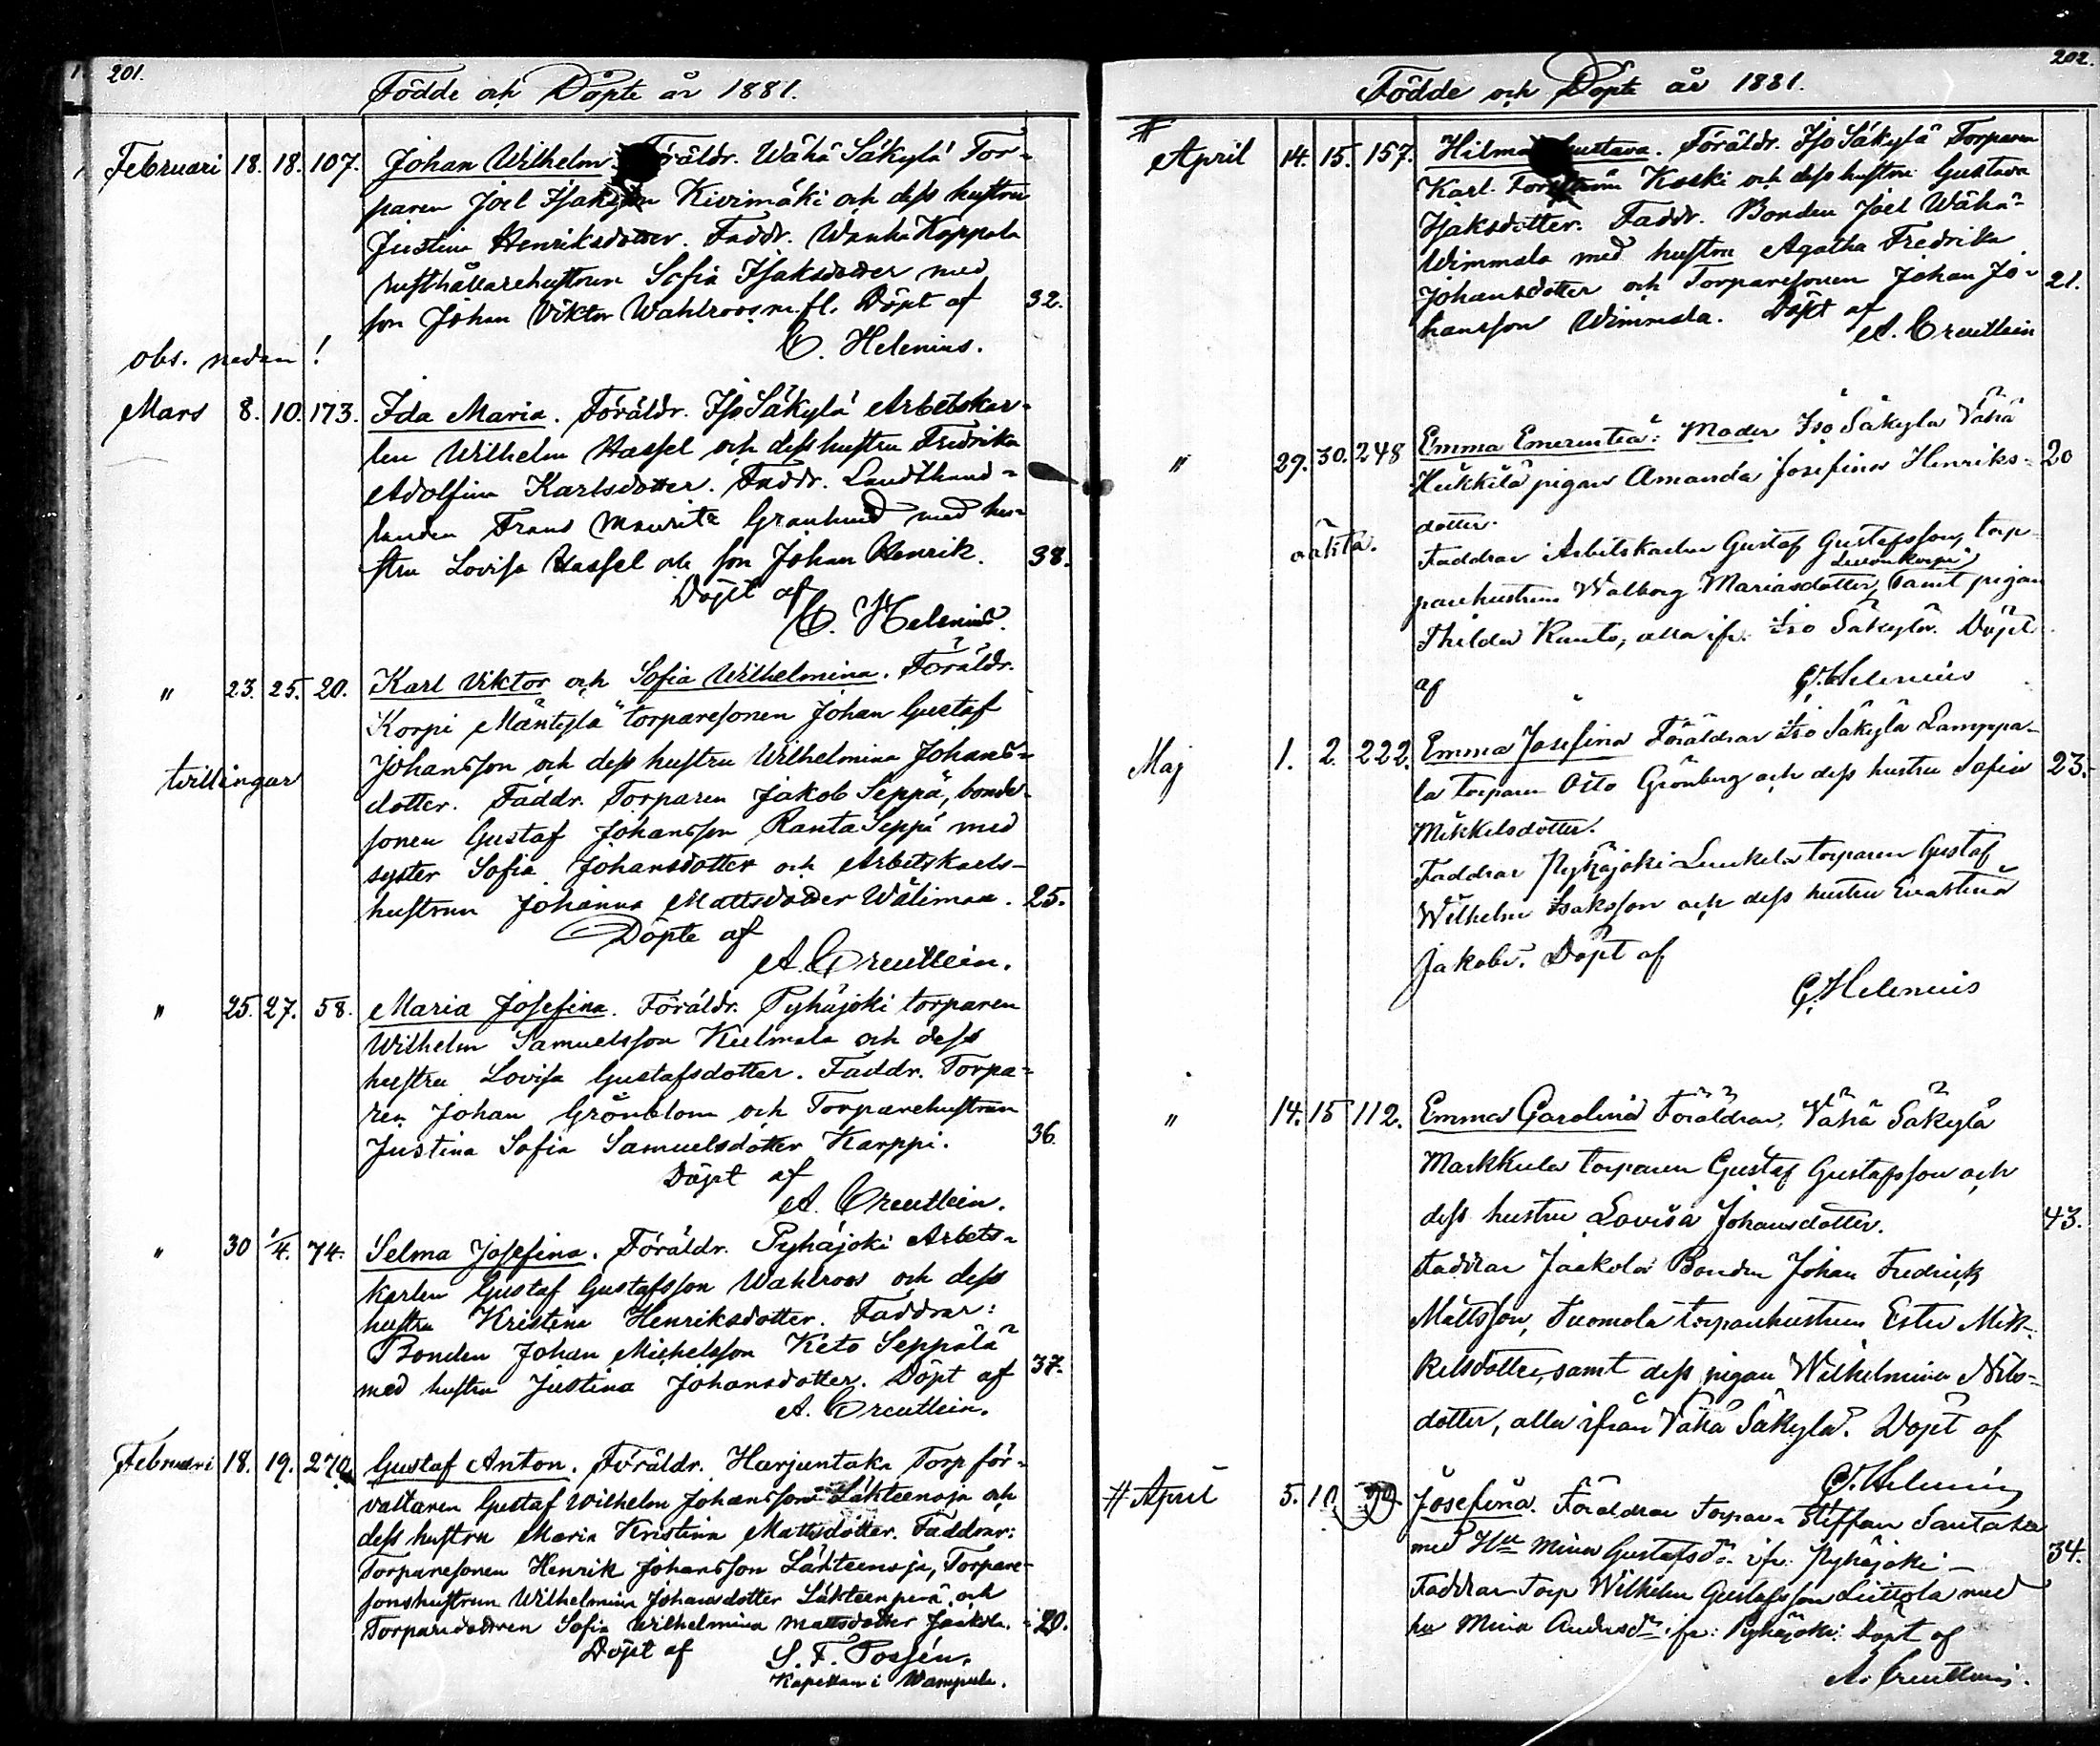 201.
Födde och Döpte år 1881.
Februari 18. 18. 107. Johan Wilhelm Föräldr. Wähä Säkylä Tor-
paren Joel Isaksson Kivimäki och dess hustru
Justina Henriksdotter. Faddr. Wanha Kappala
rusthållarehustrun Sofia Isaksdotter med
son Johan Viktor Wahlroos m. fl. Döpt af 32.
C. Helenius.
obs. nedan!
Mars 8. 10. 173. Ida Maria. Föräldr. Iso Säkylä Arbetskar-
len Wilhelm Hassel och dess hustru Fredrika
Adolfina Karlsdotter. Faddr. Landthand-
landen Frans Mauritz Granlund med hu-
stru Lovisa Hassel och son Johan Henrik. 38.
Döpt af
C. Helenius.
" 23. 25. 20. Karl Viktor och Sofia Wilhelmina. Föräldr.
Korpi Mäntylä torparesonen Johan Gustaf
tvillingar Johansson och dess hustru Wilhelmina Johans-
dotter. Faddr. Torparen Jakob Seppä, bonde-
sonen Gustaf Johansson Ranta Seppä med
syster Sofia Johansdotter och Arbetskarls-
hustrun Johanna Mattsdotter Wälimaa. 25.
Döpte af
A. Creutlein.
" 25. 27. 58. Maria Josefina. Föräldr. Pyhäjoki torparen
Wilhelm Samuelsson Kulmala och dess
hustru Lovisa Gustafsdotter. Faddr. Torpa-
ren Johan Grönblom och Torparehustrun
Justina Sofia Samuelsdotter Karppi. 36.
Döpt af
A. Creutlein.
" 30 1/4. 74. Selma Josefina. Föräldr. Pyhäjoki Arbets-
karlen Gustaf Gustafsson Wahlroos och dess
hustru Kristina Henriksdotter. Faddrar:
Bonden Johan Michelsson Keto Seppälä
med hustru Justina Johansdotter. Döpt af 37.
A. Creutlein.
Februari 18. 19. 270. Gustaf Anton. Föräldr. Harjuntaka Torp för-
valtaren Gustaf Wilhelm Johansson Lähteenoja och
dess hustru Maria Kristina Mattsdotter. Faddrar:
Torparesonen Henrik Johansson Lähteenoja, Torpare-
sonshustrun Wilhelmina Johansdotter Lähteenperä och
Torparedottren Sofia Wilhelmina Mattsdotter Jaakola. 20.
Döpt af S. F. Possén.
Kapellan i Wampula.
202.
Födde och Döpte år 1881.
# April 14. 15. 157. Hilma Gustava. Föräldr. Iso Säkylä Torparen
Karl Koski och dess hustru Gustava
Isaksdotter. Faddr. Bonden Joel Wähä-
Wimmala med hustru Agatha Fredrika
Johansdotter och Torparesonen Johan Jo- 21.
hansson Wimmala. Döpt af
A. Creutlein
" 29. 30. 248 Emma Emerentia: Moder Iso Säkylä Vähä
Hukkila pigan Amanda Josefina Henriks- 20
dotter.
oäkta. Faddrar Arbetskarlen Gustaf Gustafsson, torp-
parehustrun Walborg Mariasdotter, samt pigan
Thilda Ranto, alla ifr. Iso Säkylä. Döpt
af C. Helenius
Maj 1. 2. 222. Emma Josefina Föräldrar Iso Säkylä Lamppa-
la torparen Otto Grönberg och dess hustru Sofia 23.
Mikkelsdotter.
Faddrar Pyhäjoki torparen Gustaf
Wilhelm Isaksson och dess hustru Evastina
Jakobs. Döpt af
C. Helenius
" 14. 15 112. Emma Carolina Föräldrar, Vähä Säkylä
Markkula torparen Gustaf Gustafsson och
dess hustru Lovisa Johansdotter. 43.
Faddrar Jaakola Bonden Johan Fredrick
Mattsson, Tuomola torparehustrun Ester Mik-
kelsdotter, samt dess pigan Wilhelmina Nils-
dotter, alla ifrån Vähä Säkylä. Döpt af
C. Helenius
# April 5. 10 Josefina. Föräldrar Torparen Steffan Santaha
med Hu Mina Gustafsdr. ifr. Pyhäjoki - 34.
Faddrar Torp Wilhelm Gustafsson Liittola med
hu Mina Andersdr. ifr: Pyhäjoki: Döpt af
A. Creutlein.